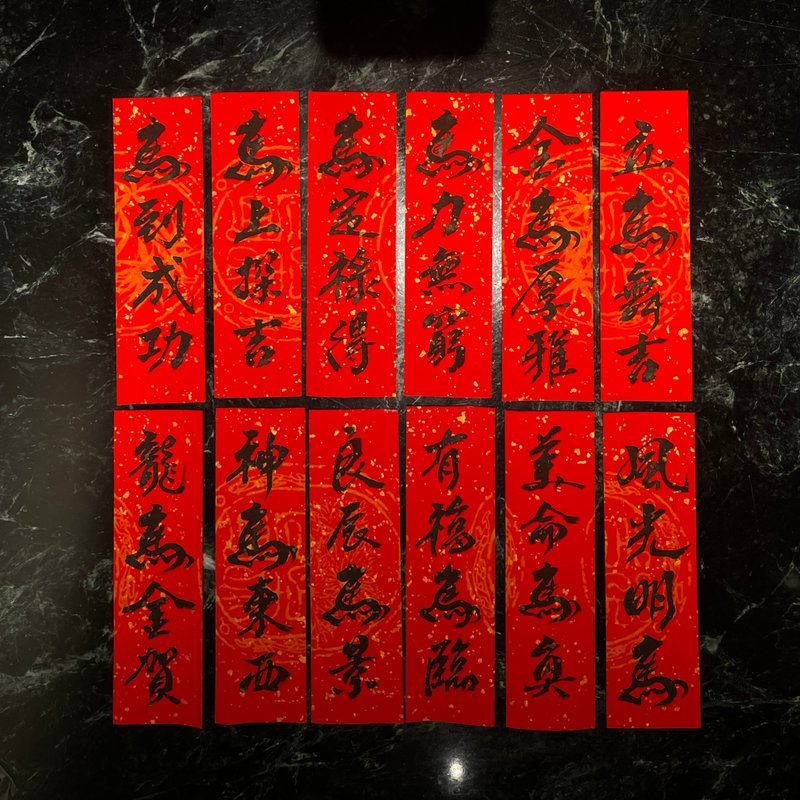 馬到成功
馬上探吉
馬定祿得
馬力無窮
全馬厚雅
立馬舞吉
龍馬金賀
神馬東西
良辰馬景
有福馬臨
美侖馬奐
風光明馬